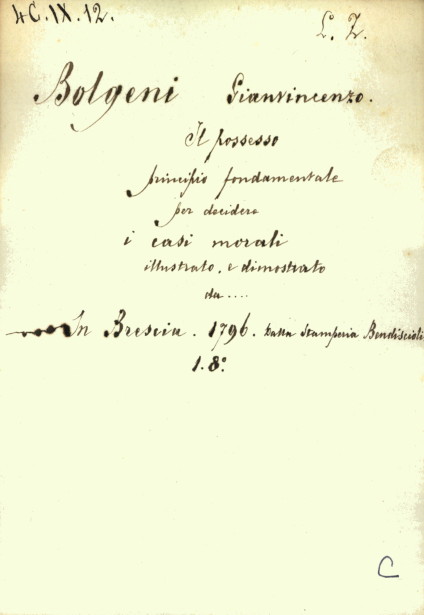 4C.IX.12.
L. Z.
Bolgeni Gianvincenzo.
Il possesso
principio fondamentale
per decidere
i casi morali
illustrato, e dimostrato
da....
In Brescia. 1796. Dalla Stamperia Bendiscioli
1.8º
C